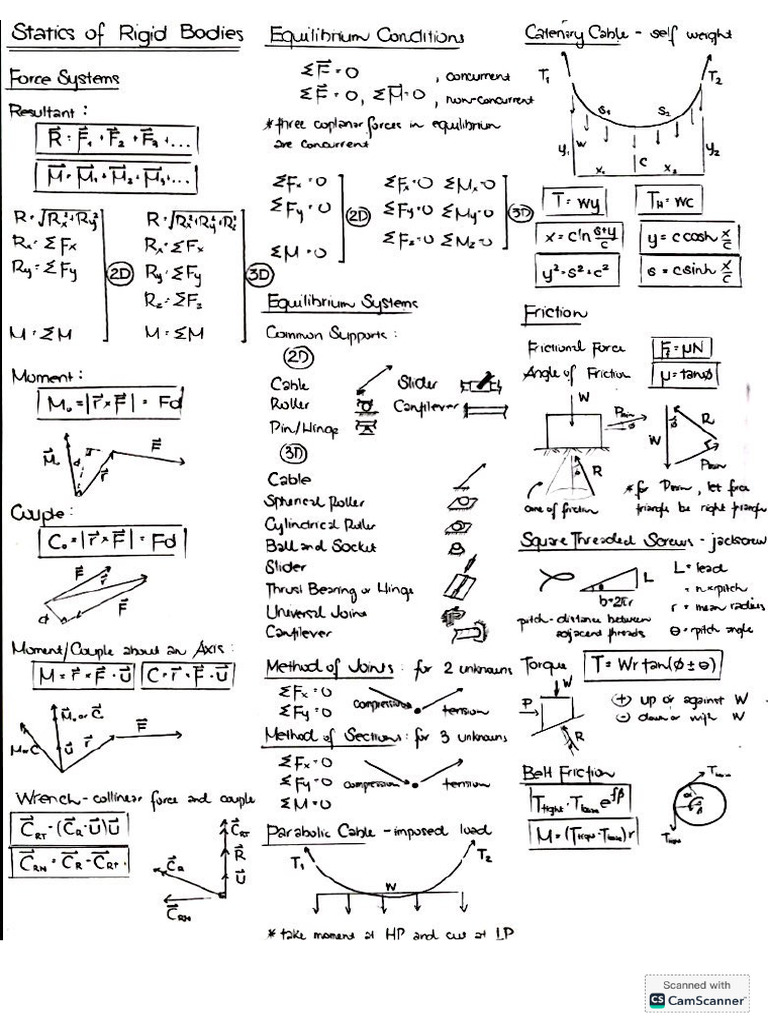 Statics of Rigid Bodies
Force Systems
Resultant :
R⃗ = F⃗₁ + F⃗₂ + F⃗₃ + ...
M⃗ = M⃗₁ + M⃗₂ + M⃗₃ + ...
R = √Rx² + Ry²
Rx = ΣFx
Ry = ΣFy
M = ΣM
2D
R = √Rx² + Ry² + Rz²
Rx = ΣFx
Ry = ΣFy
Rz = ΣFz
M = ΣM
3D
Moment :
Mo = |r⃗ × F⃗| = Fd
M⃗ d r⃗ F⃗
Couple :
Co = |r⃗ × F⃗| = Fd
F⃗ d F⃗
Moment/Couple about an Axis :
M = r⃗ × F⃗ · U⃗
C = r⃗ × F⃗ · U⃗
M⃗o or C⃗ F⃗
M or C U⃗ r⃗
Wrench - collinear force and couple
C⃗RT = (C⃗R · U⃗)U⃗
C⃗RN = C⃗R - C⃗RT
C⃗RT
R⃗
C⃗R
U⃗
C⃗RN
Equilibrium Conditions
ΣF⃗ = 0 , concurrent
ΣF⃗ = 0, ΣM⃗ = 0 , non-concurrent
* three coplanar forces in equilibrium
are concurrent
ΣFx = 0
ΣFy = 0
ΣM = 0
2D
ΣFx = 0 ΣMx = 0
ΣFy = 0 ΣMy = 0
ΣFz = 0 ΣMz = 0
3D
Equilibrium Systems
Common Supports :
2D
Cable Slider
Roller Cantilever
Pin/Hinge
3D
Cable
Spherical Roller
Cylindrical Roller
Ball and Socket
Slider
Thrust Bearing or Hinge
Universal Joint
Cantilever
Method of Joints : for 2 unknowns
ΣFx = 0
ΣFy = 0
compression tension
Method of Sections : for 3 unknowns
ΣFx = 0
ΣFy = 0
ΣM = 0
compression tension
Parabolic Cable - imposed load
T₁ T₂
W
* take moment at HP and cut at LP
Catenary Cable - self weight
T₁ T₂
S₁ S₂
W
y₁ C y₂
x₁ x₂
T = wy
TH = wc
x = c ln (s+y)/c
y = c cosh x/c
y² = s² + c²
s = c sinh x/c
Friction
Frictional Force
Angle of Friction μ = tanφ
W
Pmin
φ
R
W
Pmin
R
cone of friction
* for Pmin, let force
triangle be right triangle
Square Threaded Screws - jackscrew
L
b = 2πr
L = lead
= n × pitch
r = mean radius
θ = pitch angle
pitch - distance between
adjacent threads
Torque
T = Wr tan(φ ± θ)
W
P
R
+ up or against W
- down or with W
Belt Friction
M = (Ttight - Tloose) r